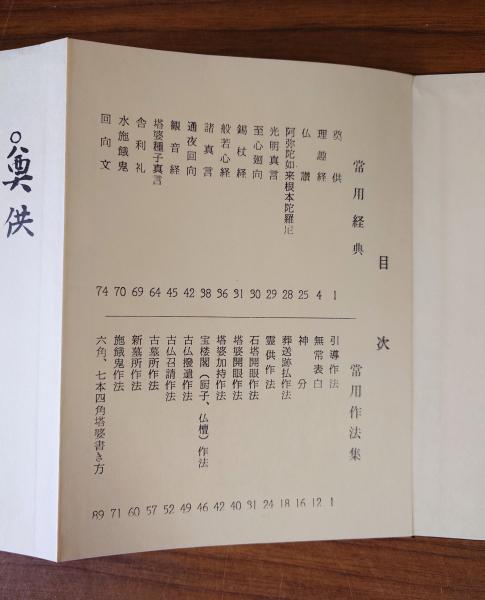 目次
常用経典
奠供 1
理趣経 4
仏讃 25
阿弥陀如来根本陀羅尼 28
光明真言 29
至心廻向 30
錫杖経 31
般若心経 36
諸真言 38
通夜回向 42
観音経 45
塔婆種子真言 64
舎利礼 69
水施餓鬼 70
回向文 74
常用作法集
引導作法 1
無常表白 12
神分 16
葬送跡払作法 18
霊供作法 24
石塔開眼作法 31
塔婆開眼作法 40
塔婆加持作法 42
宝楼閣（厨子、仏壇）作法 46
古仏撥遣作法 49
古仏召請作法 52
古墓所作法 57
新墓所作法 60
施餓鬼作法 71
六角、七本四角塔婆書き方 89
○奠供